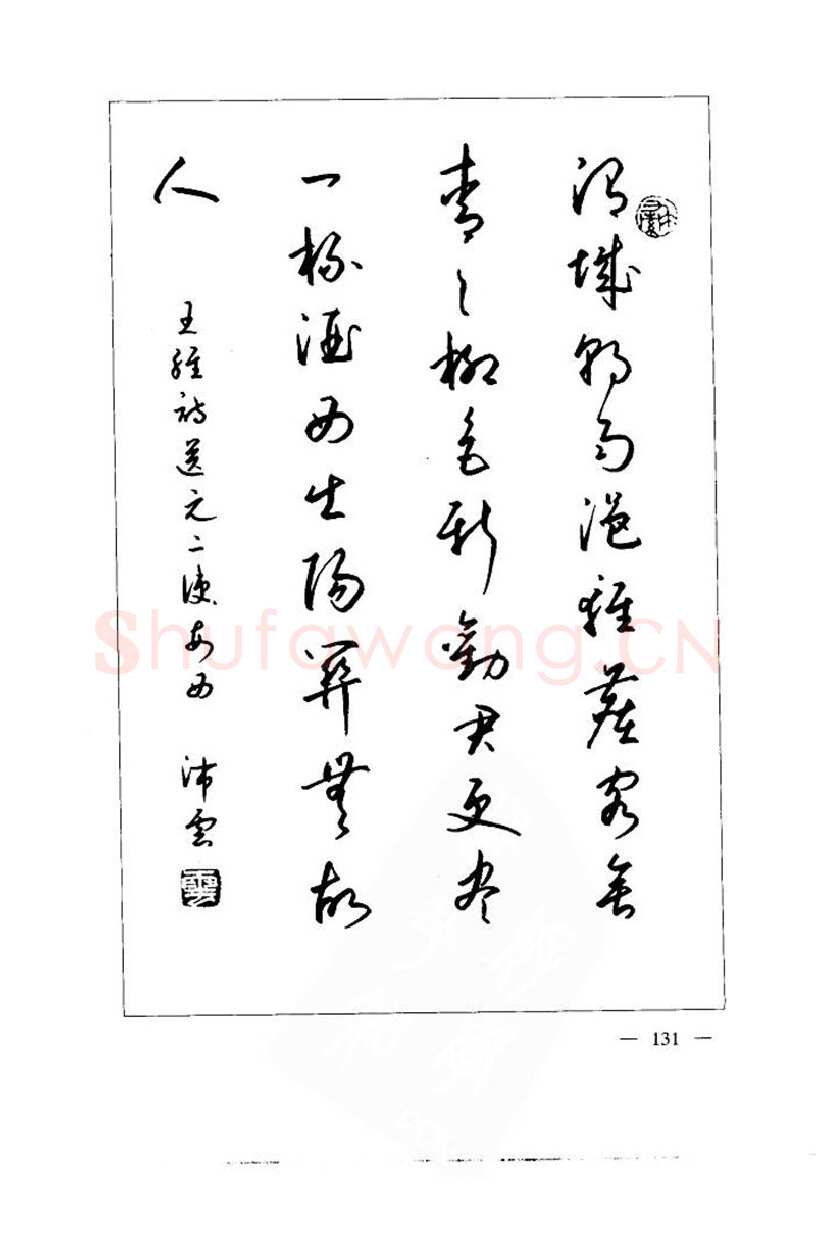 渭城朝雨浥轻尘客舍
青々柳色新劝君更尽
一杯酒西出阳关無故
人
王维诗送元二使安西 沛雲
雲
Shufawang.CN
— 131 —